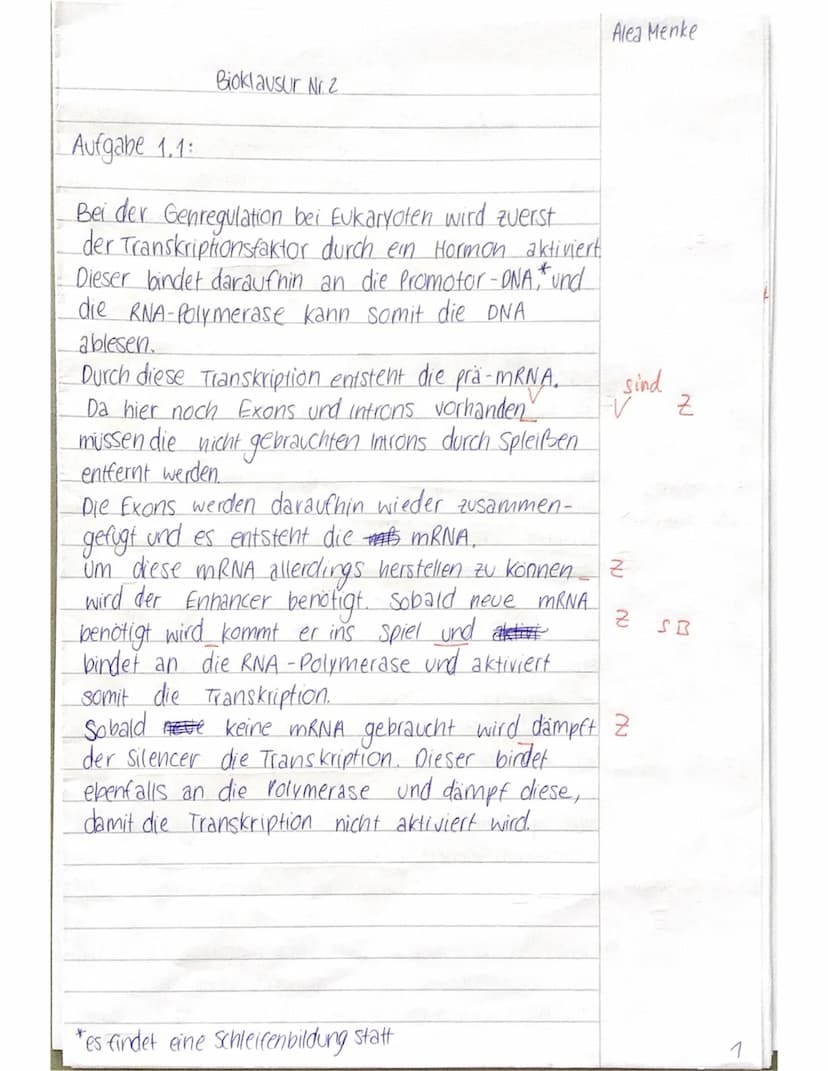 Alea Menke
Bioklausur Nr. 2
Aufgabe 1.1:
Bei der Genregulation bei Eukaryoten wird zuerst
der Transkriptionsfaktor durch ein Hormon aktiviert.
Dieser bindet daraufhin an die Promotor-DNA,* und
die RNA-Polymerase kann somit die DNA
ablesen.
Durch diese Transkription entsteht die prä-mRNA.
Da hier noch Exons und Introns vorhanden V sind Z
müssen die nicht gebrauchten Introns durch Spleißen
entfernt werden.
Die Exons werden daraufhin wieder zusammen-
gefügt und es entsteht die mRNA.
Um diese mRNA allerdings herstellen zu können Z
wird der Enhancer benötigt. Sobald neue mRNA
benötigt wird kommt er ins Spiel und Z SB
bindet an die RNA-Polymerase und aktiviert
somit die Transkription.
Sobald neue keine mRNA gebraucht wird dämpft Z
der Silencer die Transkription. Dieser bindet
ebenfalls an die Polymerase und dämpf diese,
damit die Transkription nicht aktiviert wird.
*es findet eine Schleifenbildung statt
1